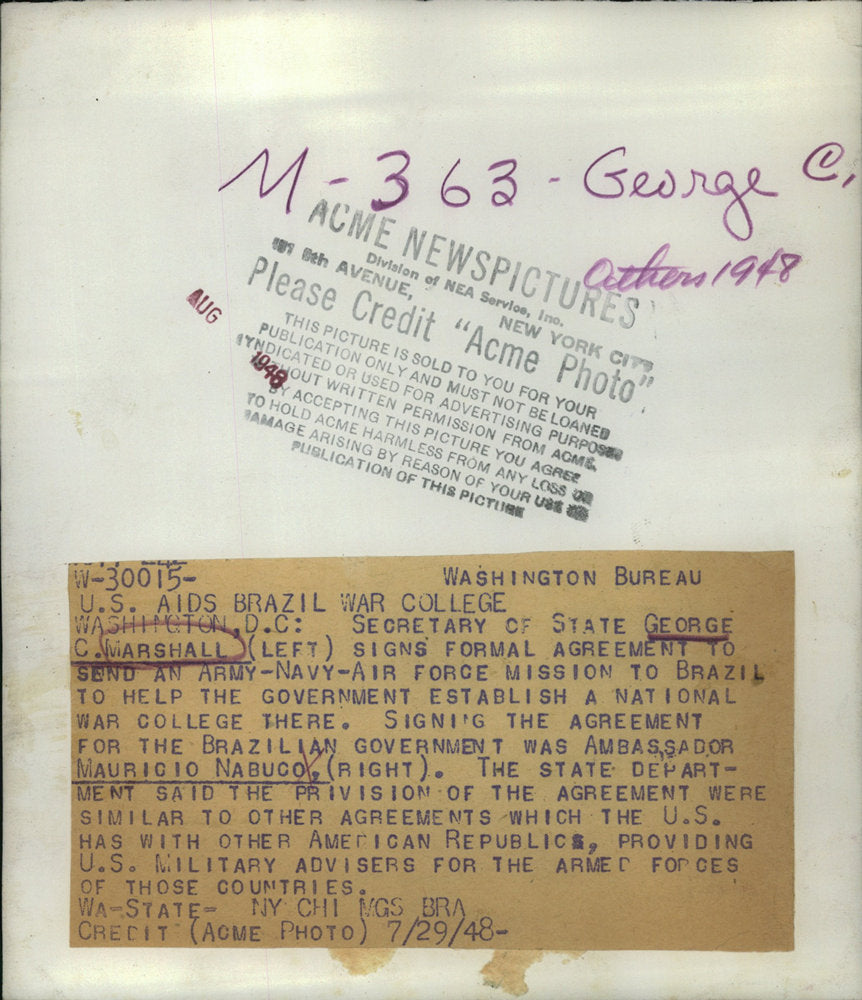 M-363-George C.
Others 1948
ACME NEWSPICTURES
Division of NEA Service, Inc.
8th AVENUE, NEW YORK CITY
Please Credit "Acme Photo"
THIS PICTURE IS SOLD TO YOU FOR YOUR
PUBLICATION ONLY AND MUST NOT BE LOANED
SYNDICATED OR USED FOR ADVERTISING PURPOSES
WITHOUT WRITTEN PERMISSION FROM ACME.
BY ACCEPTING THIS PICTURE YOU AGREE
TO HOLD ACME HARMLESS FROM ANY LOSS OR
DAMAGE ARISING BY REASON OF YOUR USE OR
PUBLICATION OF THIS PICTURE
AUG
1948
W-30015- WASHINGTON BUREAU
U.S. AIDS BRAZIL WAR COLLEGE
WASHINGTON, D.C: SECRETARY OF STATE GEORGE
C. MARSHALL (LEFT) SIGNS FORMAL AGREEMENT TO
SEND AN ARMY-NAVY-AIR FORCE MISSION TO BRAZIL
TO HELP THE GOVERNMENT ESTABLISH A NATIONAL
WAR COLLEGE THERE. SIGNI'G THE AGREEMENT
FOR THE BRAZILIAN GOVERNMENT WAS AMBASSADOR
MAURICIO NABUCO, (RIGHT). THE STATE DEPART-
MENT SAID THE PRIVISION OF THE AGREEMENT WERE
SIMILAR TO OTHER AGREEMENTS WHICH THE U.S.
HAS WITH OTHER AMERICAN REPUBLICS, PROVIDING
U.S. MILITARY ADVISERS FOR THE ARMED FORCES
OF THOSE COUNTRIES.
WA-STATE- NY CHI MGS BRA
CREDIT (ACME PHOTO) 7/29/48-